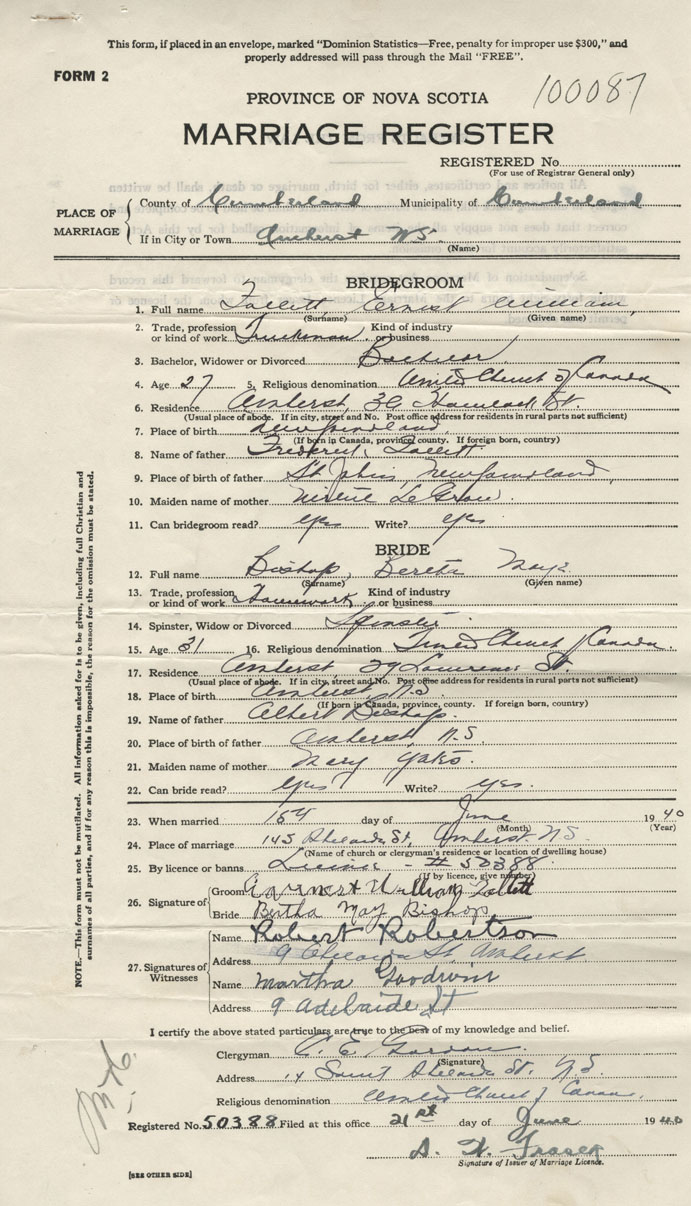 This form, if placed in an envelope, marked "Dominion Statistics—Free, penalty for improper use $300," and
properly addressed will pass through the Mail "FREE".
FORM 2
100087
PROVINCE OF NOVA SCOTIA
MARRIAGE REGISTER
REGISTERED No.
(For use of Registrar General only)
PLACE OF MARRIAGE
County of Cumberland Municipality of Cumberland
If in City or Town Amherst NS
(Name)
BRIDEGROOM
1. Full name Follett, Ernest William,
(Surname) (Given name)
2. Trade, profession or kind of work Truckman Kind of industry or business
3. Bachelor, Widower or Divorced Bachelor
4. Age 27 5. Religious denomination United Church of Canada
6. Residence Amherst, 30 St.
(Usual place of abode. If in city, street and No. Post office address for residents in rural parts not sufficient)
7. Place of birth Newfoundland,
(If born in Canada, province, county. If foreign born, country)
8. Name of father Frederick Follett
9. Place of birth of father St Johns, Newfoundland,
10. Maiden name of mother Le Grow
11. Can bridegroom read? yes Write? yes
BRIDE
12. Full name Bishop, Beretha Maye
(Surname) (Given name)
13. Trade, profession or kind of work Housework, Kind of industry or business
14. Spinster, Widow or Divorced Spinster
15. Age 31 16. Religious denomination United Church of Canada
17. Residence Amherst 29 Lawrence St.
(Usual place of abode. If in city, street and No. Post office address for residents in rural parts not sufficient)
18. Place of birth Amherst N.S
(If born in Canada, province, county. If foreign born, country)
19. Name of father Albert Bishop.
20. Place of birth of father Amherst, N.S.
21. Maiden name of mother Mary
22. Can bride read? yes Write? yes.
23. When married day of June 1940
(Month) (Year)
24. Place of marriage 145 St, Amherst NS
(Name of church or clergyman's residence or location of dwelling house)
25. By licence or banns License - # 50388
(If by licence, give number)
26. Signature of
Groom William Follett
Bride Bertha May Bishop
27. Signatures of Witnesses
Name Robert Robertson
Address 9 St Amherst
Name Martha Goodwin
Address 9 Adelaide St
I certify the above stated particulars are true to the best of my knowledge and belief.
Clergyman
(Signature)
Address St. N.S.
Religious denomination United Church of Canada.
Registered No. 50388 Filed at this office 21st day of June 1940
Fraser
Signature of Issuer of Marriage Licence.
[SEE OTHER SIDE]
NOTE.—This form must not be mutilated. All information asked for is to be given, including full Christian and
surnames of all parties, and if for any reason this is impossible, the reason for the omission must be stated.